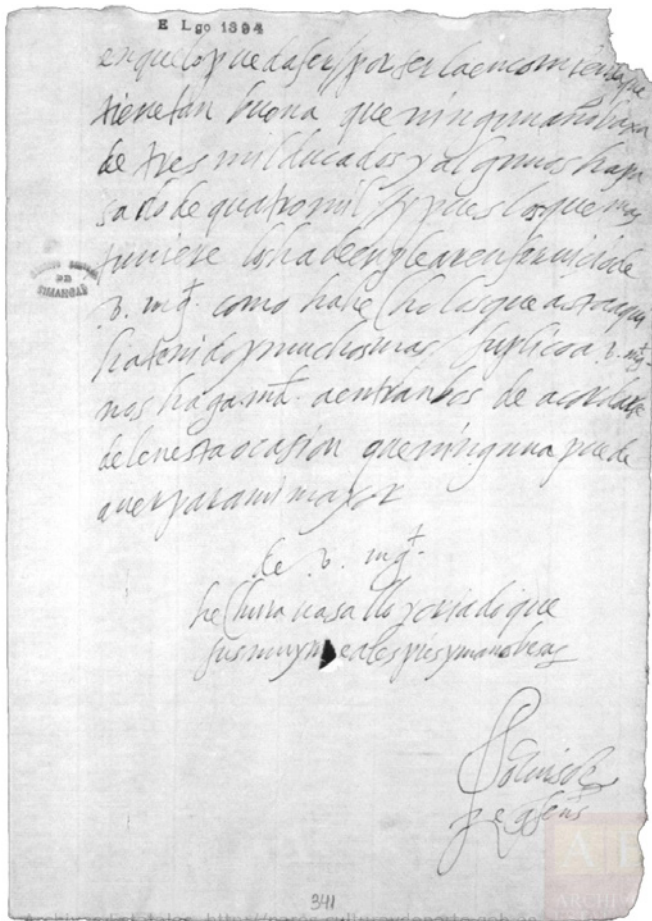 E Lgo 1394
en que lo puede ser / por ser la encomienda que
tiene tan buena que ningun año baxa
de tres mil ducados y algunos ha pa
sado de quatro mil / y pues los que mas
tuviere los ha de emplear en servicio de
v. mgt. como ha hecho los que asta aqui
ha tenido y muchos mas. suplico a v. mgt.
nos haga md. a entranbos de acordarse
del en esta ocasion que ninguna puede
aver para mi mayor
de v. mgt.
hechura vasallo y criado que
sus muy reales pies y manos besa
Don luis de
341
ARCHIVO
DE
SIMANCAS